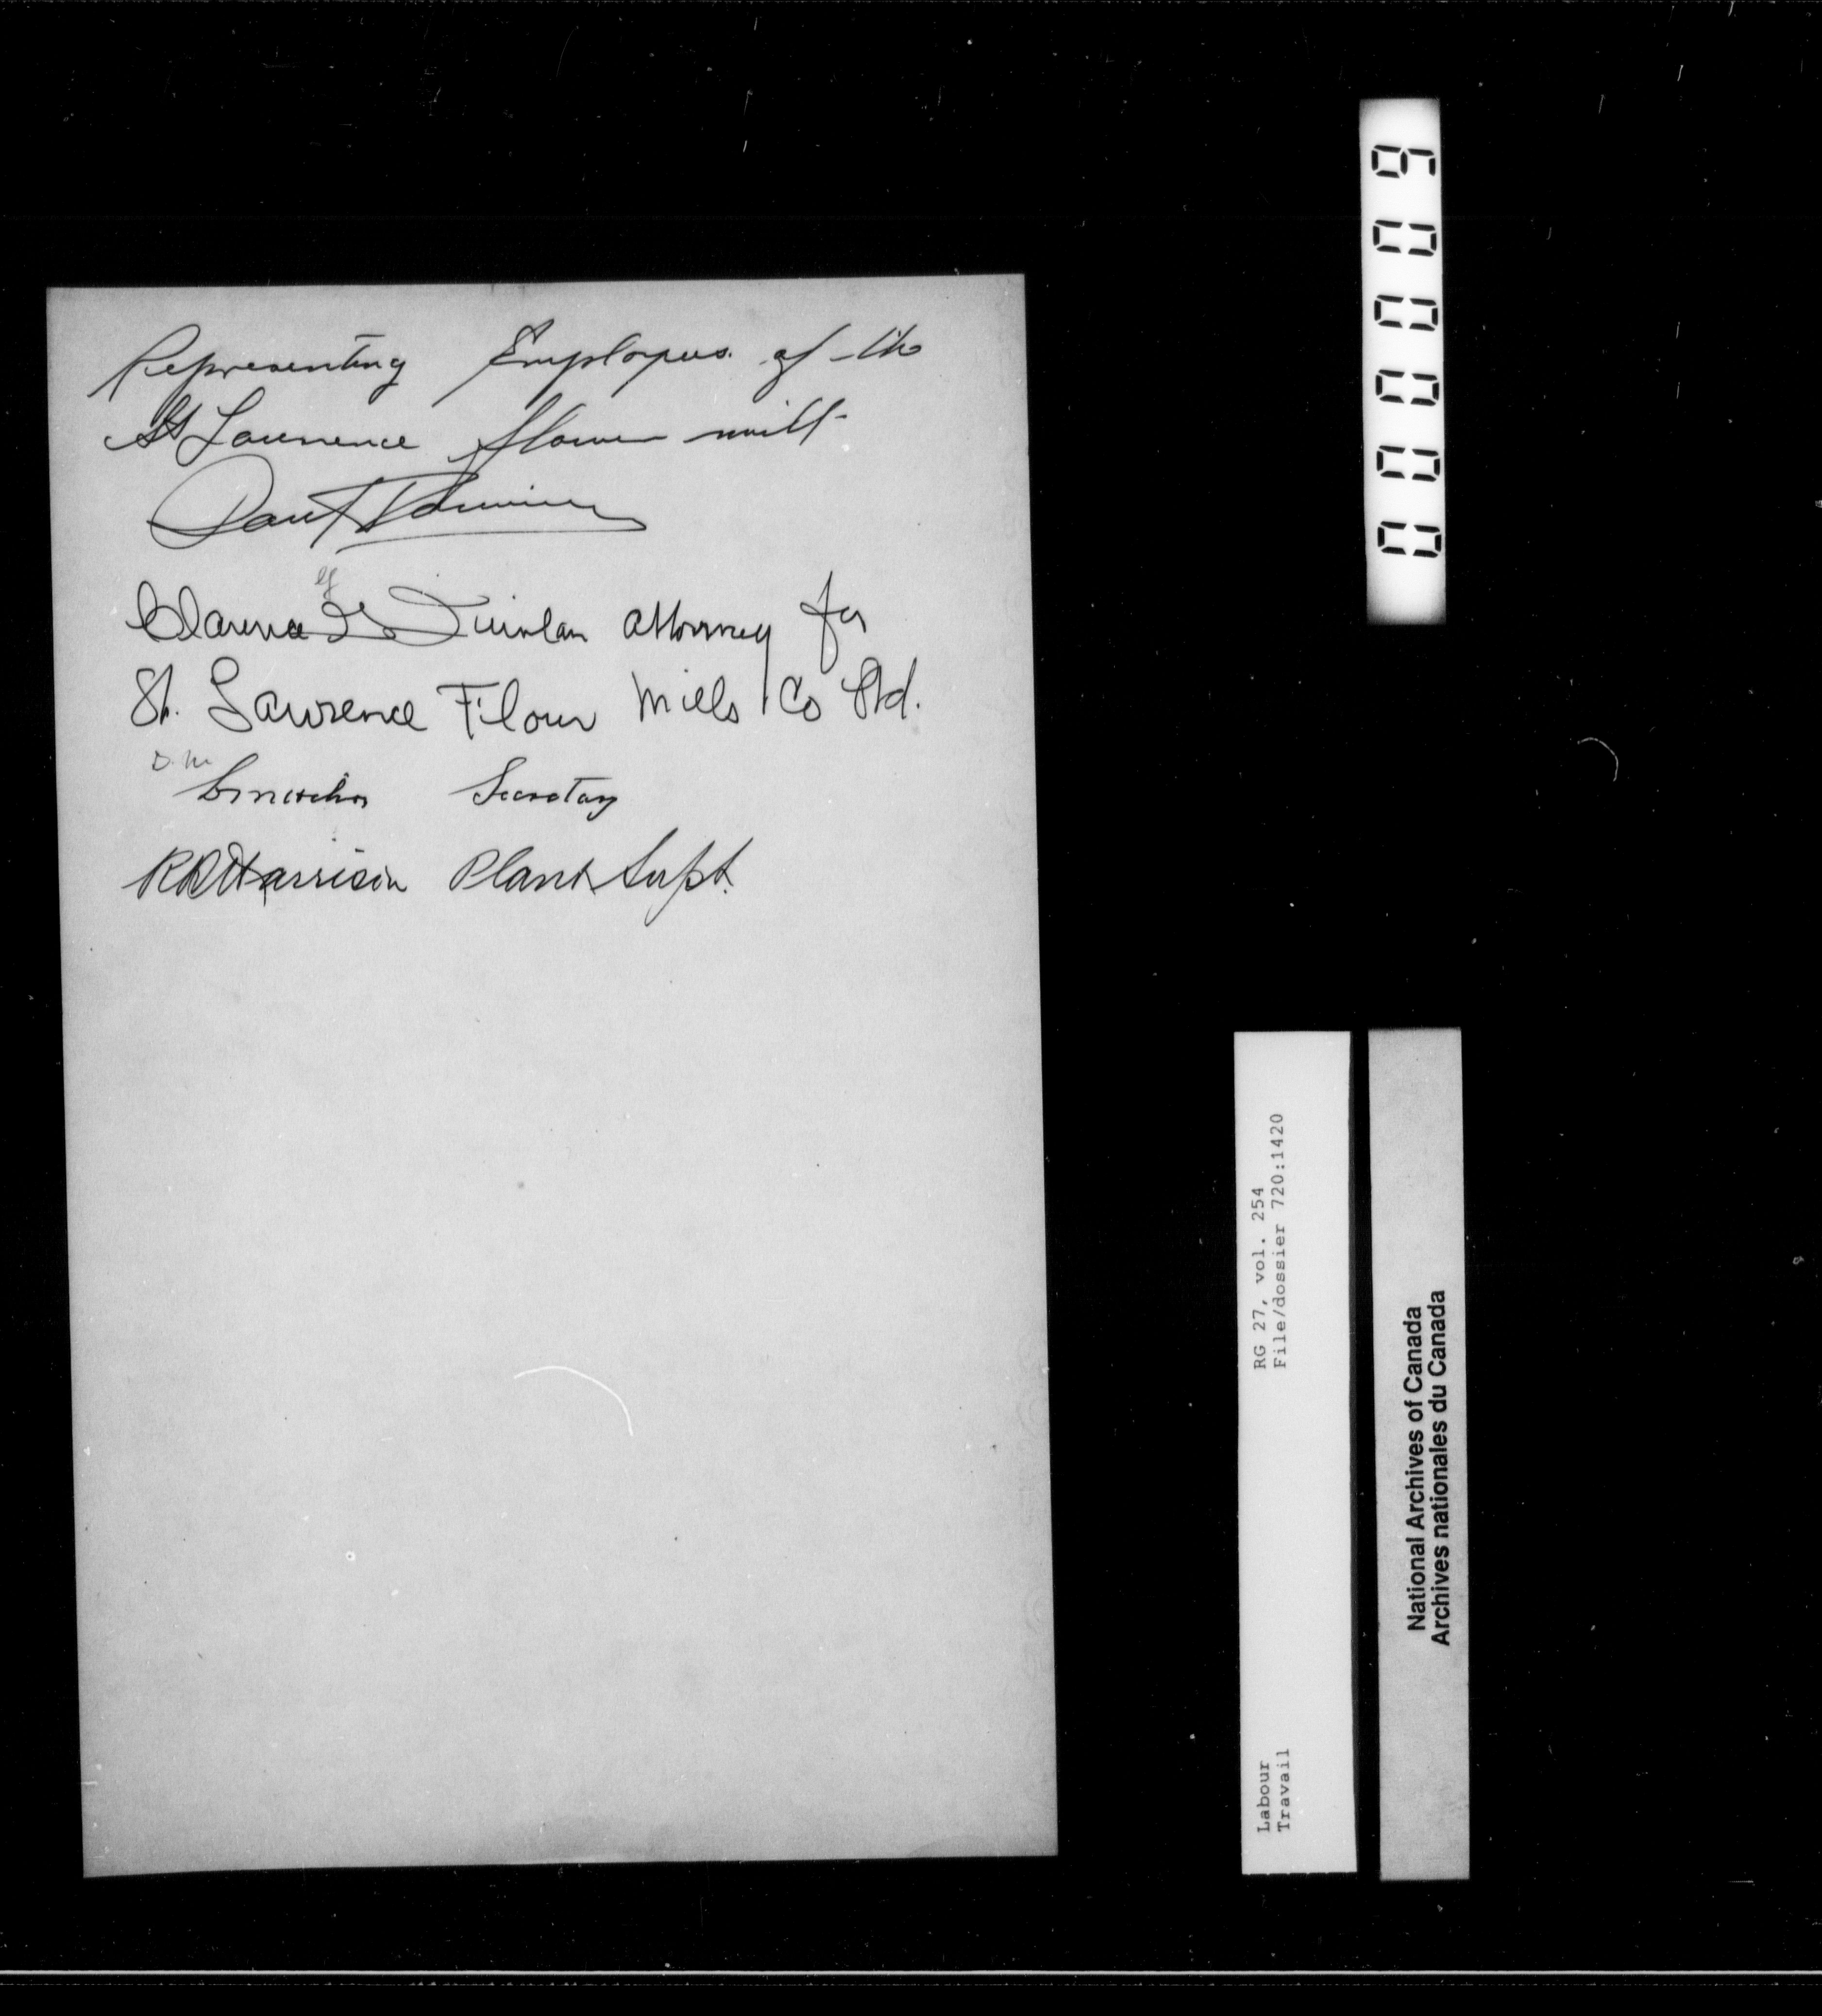 Representing Employees of the
St Lawrence flower mill
Paul
Clarence Quinlan attorney for
St. Lawrence Flour Mills Co Ltd.
Secretary
RR Harrison Plant Supt.
000009
RG 27, vol. 254
File/dossier 720:1420
Labour
Travail
National Archives of Canada
Archives nationales du Canada